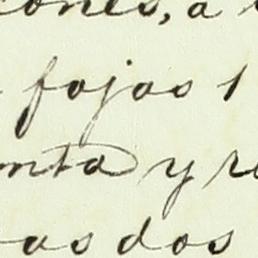 ones, a
fojas 1
nta y
as dos